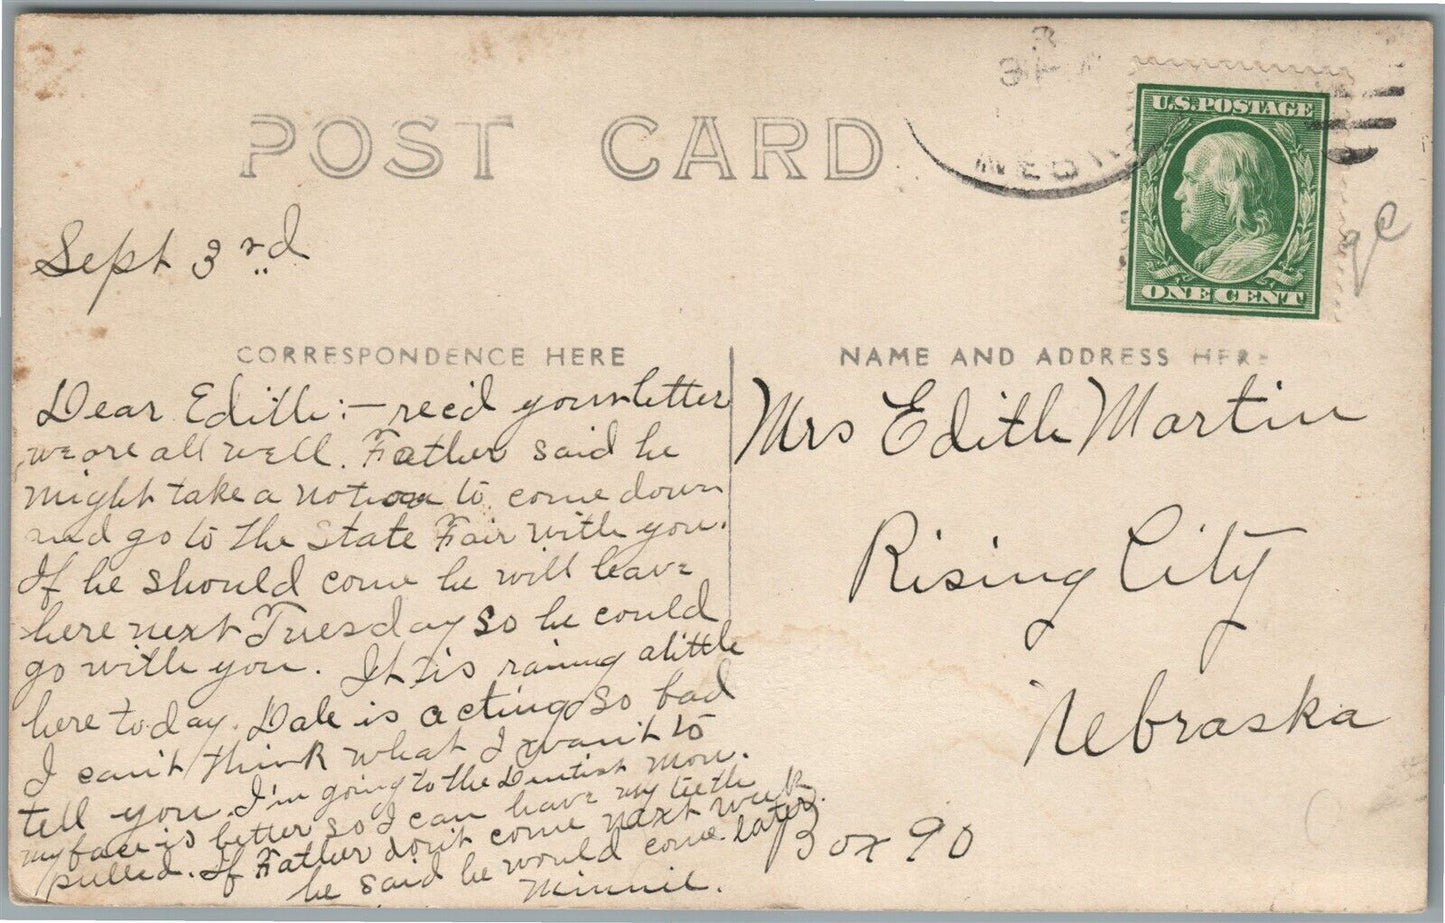 POST CARD
U.S. POSTAGE
ONE CENT
Sept 3rd
CORRESPONDENCE HERE
NAME AND ADDRESS HERE
Dear Edith:— rec'd your letter
we are all well. Father said he
might take a notion to come down
and go to the State Fair with you.
If he should come he will leave
here next Tuesday so he could
go with you. It is raining a little
here today. Dale is acting so bad
I can't think what I want to
tell you. I'm going to the Dentist Mon.
my face is better so I can have my teeth
pulled. If Father don't come next week
he said he would come later.
Minnie.
Mrs Edith Martin
Rising City
Nebraska
Box 90